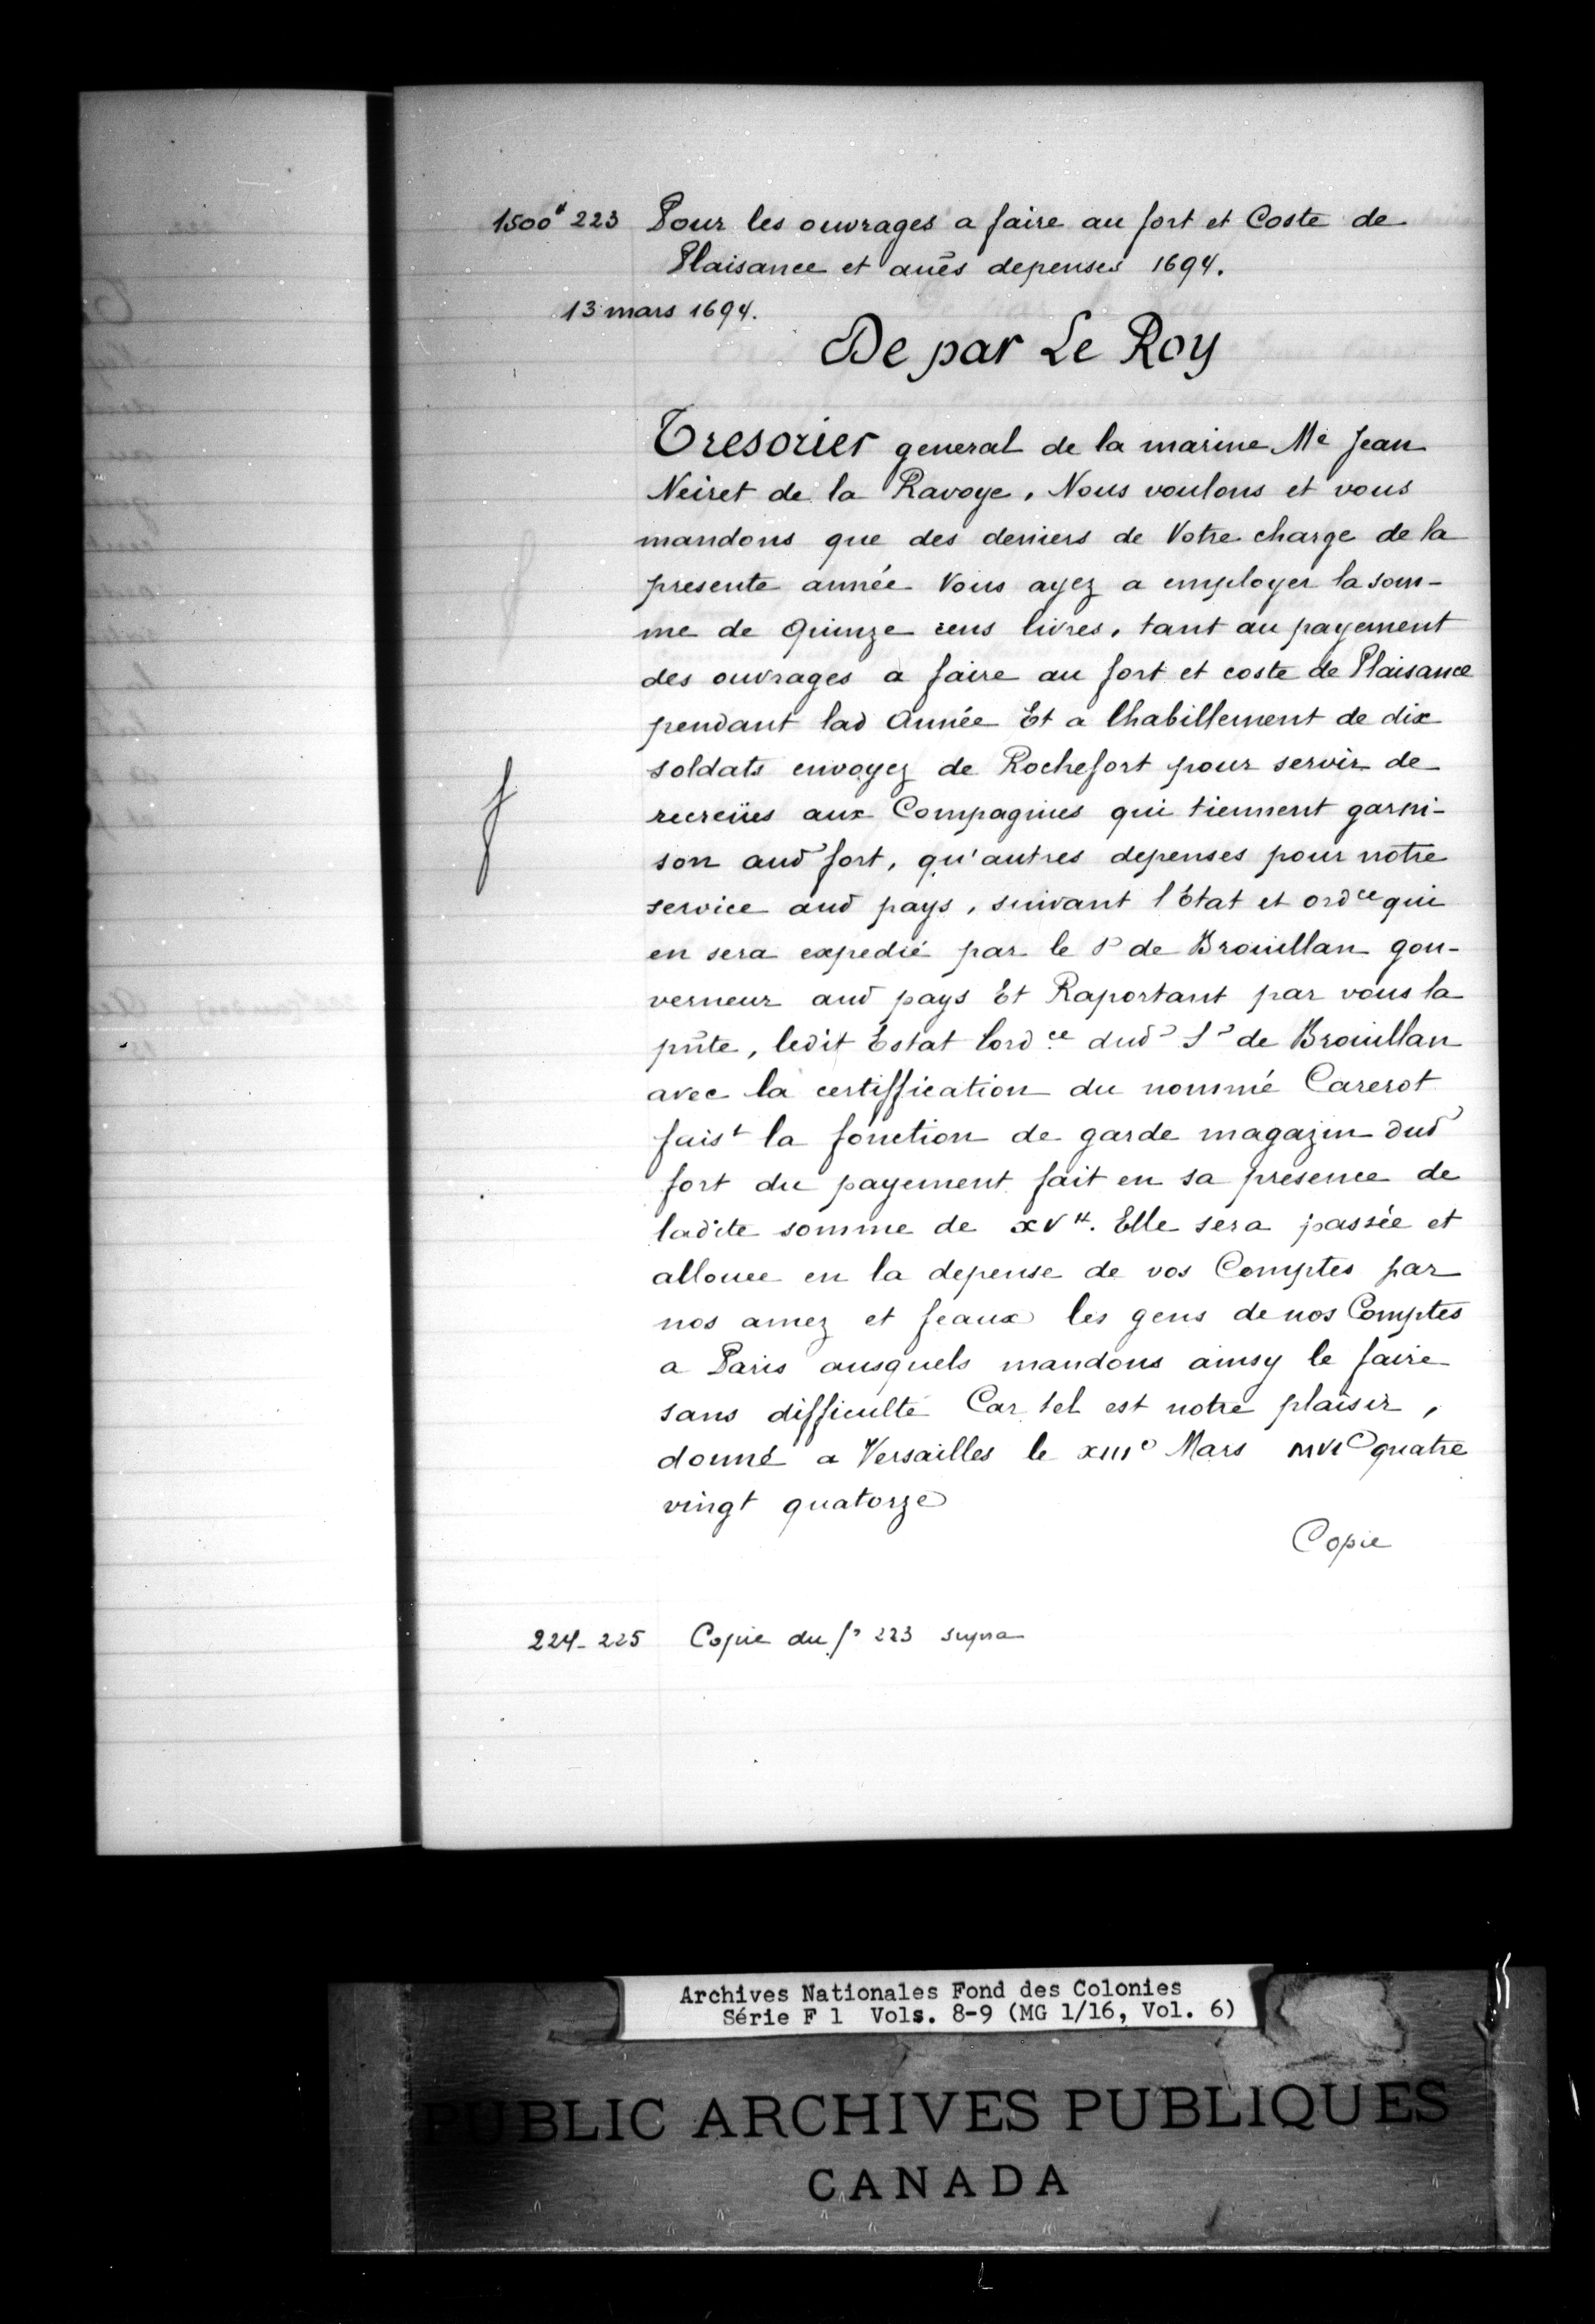 1500# 223 Pour les ouvrages a faire au fort et Coste de
Plaisance et auēs depenses 1694.
13 mars 1694.
De par Le Roy
Tresorier general de la marine Me Jean
Neiret de la Ravoye, Nous voulons et vous
mandons que des deniers de Votre charge de la
presente année Vous ayez a employer la som-
me de Quinze cens livres, tant au payement
des ouvrages a faire au fort et coste de Plaisance
pendant lad Année Et a lhabillement de dix
soldats envoyez de Rochefort pour servir de
recreües aux Compagnies qui tiennent garni-
son aud fort, qu'autres depenses pour notre
service aud pays, suivant l Etat et ordce qui
en sera expedié par le Sr de Brouillan gou-
verneur aud pays Et Raportant par vous la
pn̄te, ledit Estat lordce dud Sr de Brouillan
avec la certiffication du nommé Carerot
faist la fonction de garde magazin dud
fort du payement fait en sa presence de
ladite somme de xv#. Elle sera passée et
allouee en la depense de vos Comptes par
nos amez et feaux les gens de nos Comptes
a Paris ausquels mandons ainsy le faire
sans difficulté Car tel est notre plaisir,
donné a Versailles le xiiie Mars MVIC quatre
vingt quatorze
Copie
224-225 Copie du fo 223 supra
Archives Nationales Fond des Colonies
Série F 1 Vols. 8-9 (MG 1/16, Vol. 6)
PUBLIC ARCHIVES PUBLIQUES
CANADA